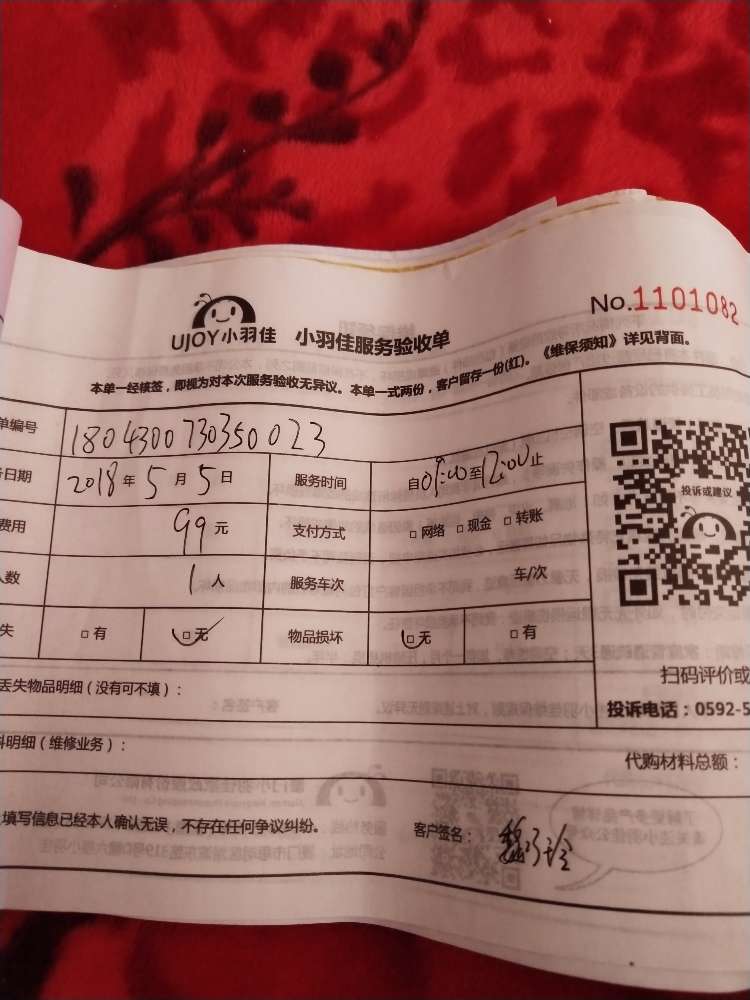 UJOY小羽佳 小羽佳服务验收单 No.1101082
本单一经核签，即视为对本次服务验收无异议。本单一式两份，客户留存一份(红)。《维保须知》详见背面。
单编号 1804300730350023
日期 2018年5月5日 服务时间 自09:00至12:00止
费用 99元 支付方式 □网络 □现金 □转账
人数 1人 服务车次 车/次
失 □有 □无 物品损坏 □无 □有
投诉或建议
扫码评价或
丢失物品明细（没有可不填）：
投诉电话：0592-5
料明细（维修业务）：
代购材料总额：
填写信息已经本人确认无误，不存在任何争议纠纷。 客户签名：